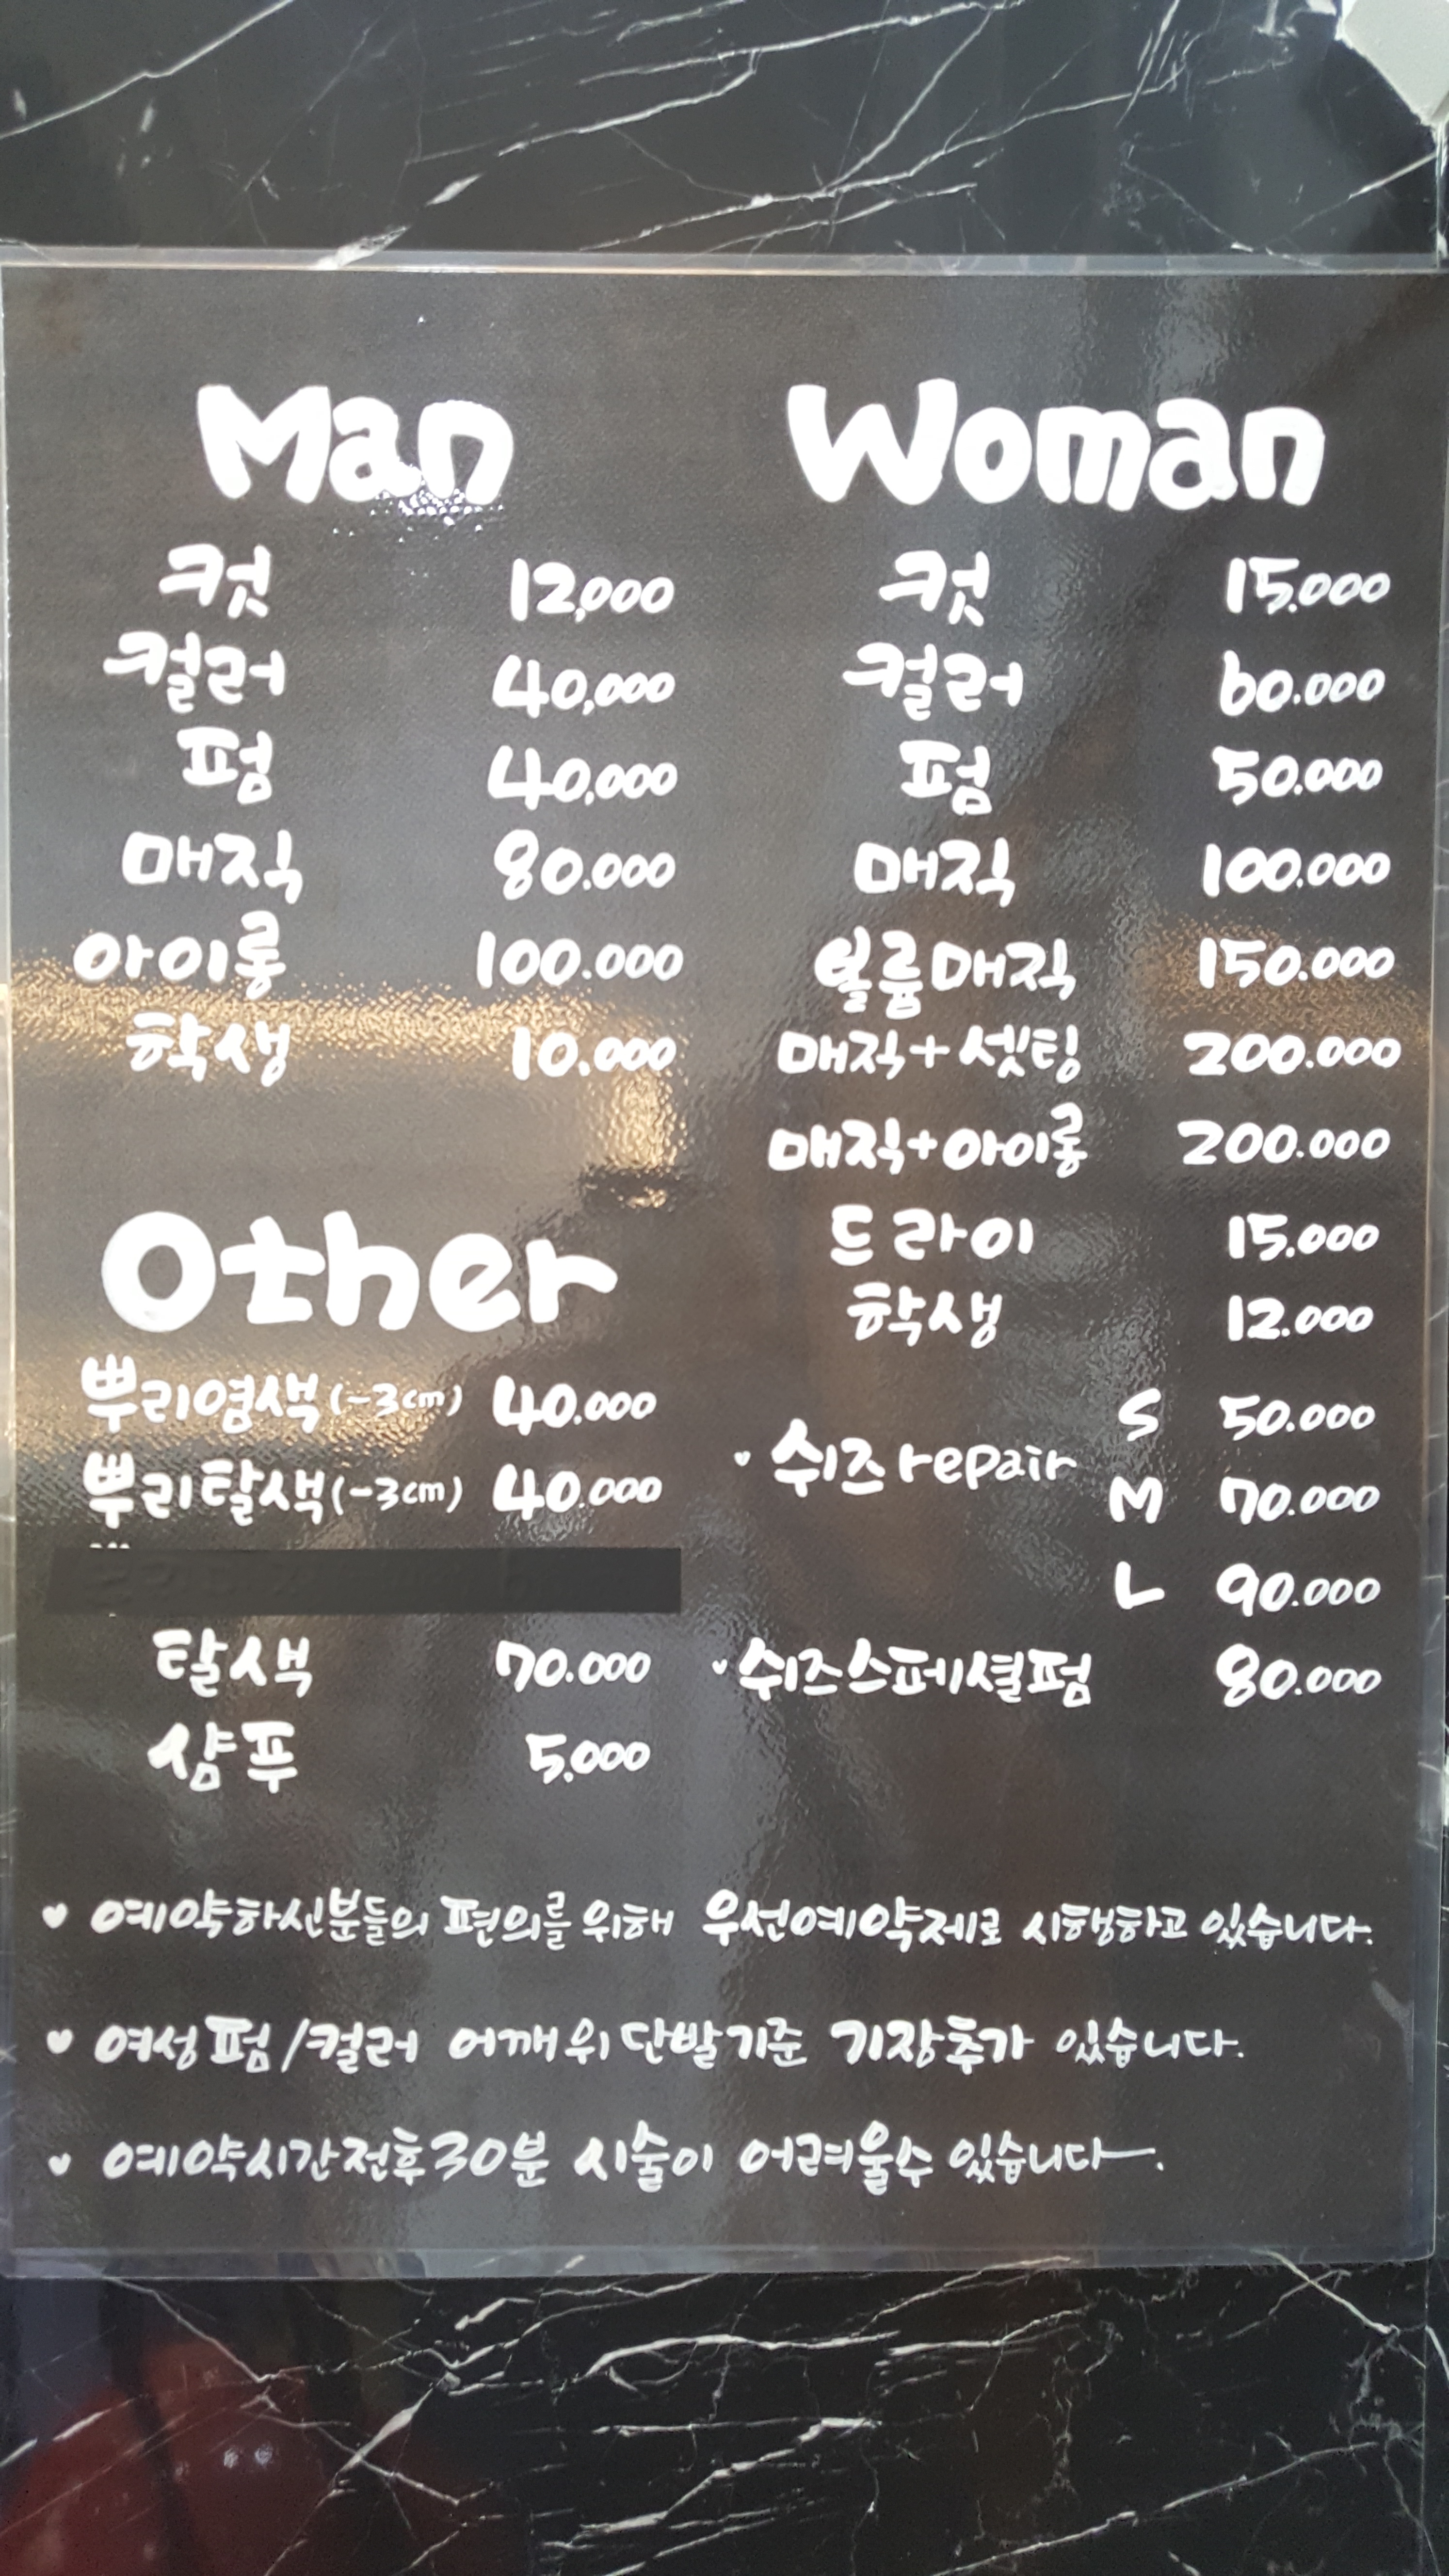 Man
컷 12,000
컬러 40,000
펌 40,000
매직 80.000
아이롱 100.000
학생 10.000
Woman
컷 15.000
컬러 60.000
펌 50.000
매직 100.000
볼륨매직 150.000
매직+셋팅 200.000
매직+아이롱 200.000
드라이 15.000
학생 12.000
쉬즈 repair S 50.000
M 70.000
L 90.000
쉬즈스페셜펌 80.000
Other
뿌리염색(-3cm) 40.000
뿌리탈색(-3cm) 40.000
탈색 70.000
샴푸 5.000
♥ 예약하신분들의 편의를 위해 우선예약제로 시행하고 있습니다.
♥ 여성펌/컬러 어깨위단발기준 기장추가 있습니다.
♥ 예약시간전후30분 시술이 어려울수 있습니다.